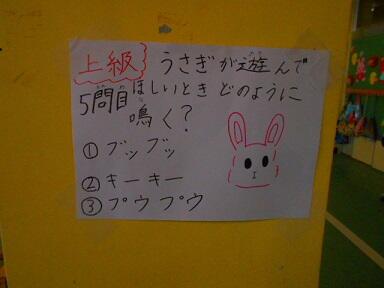 上級
うさぎが遊んで
5問目 ほしいとき どのように
鳴く?
① ブッブッ
② キーキー
③ プウプウ